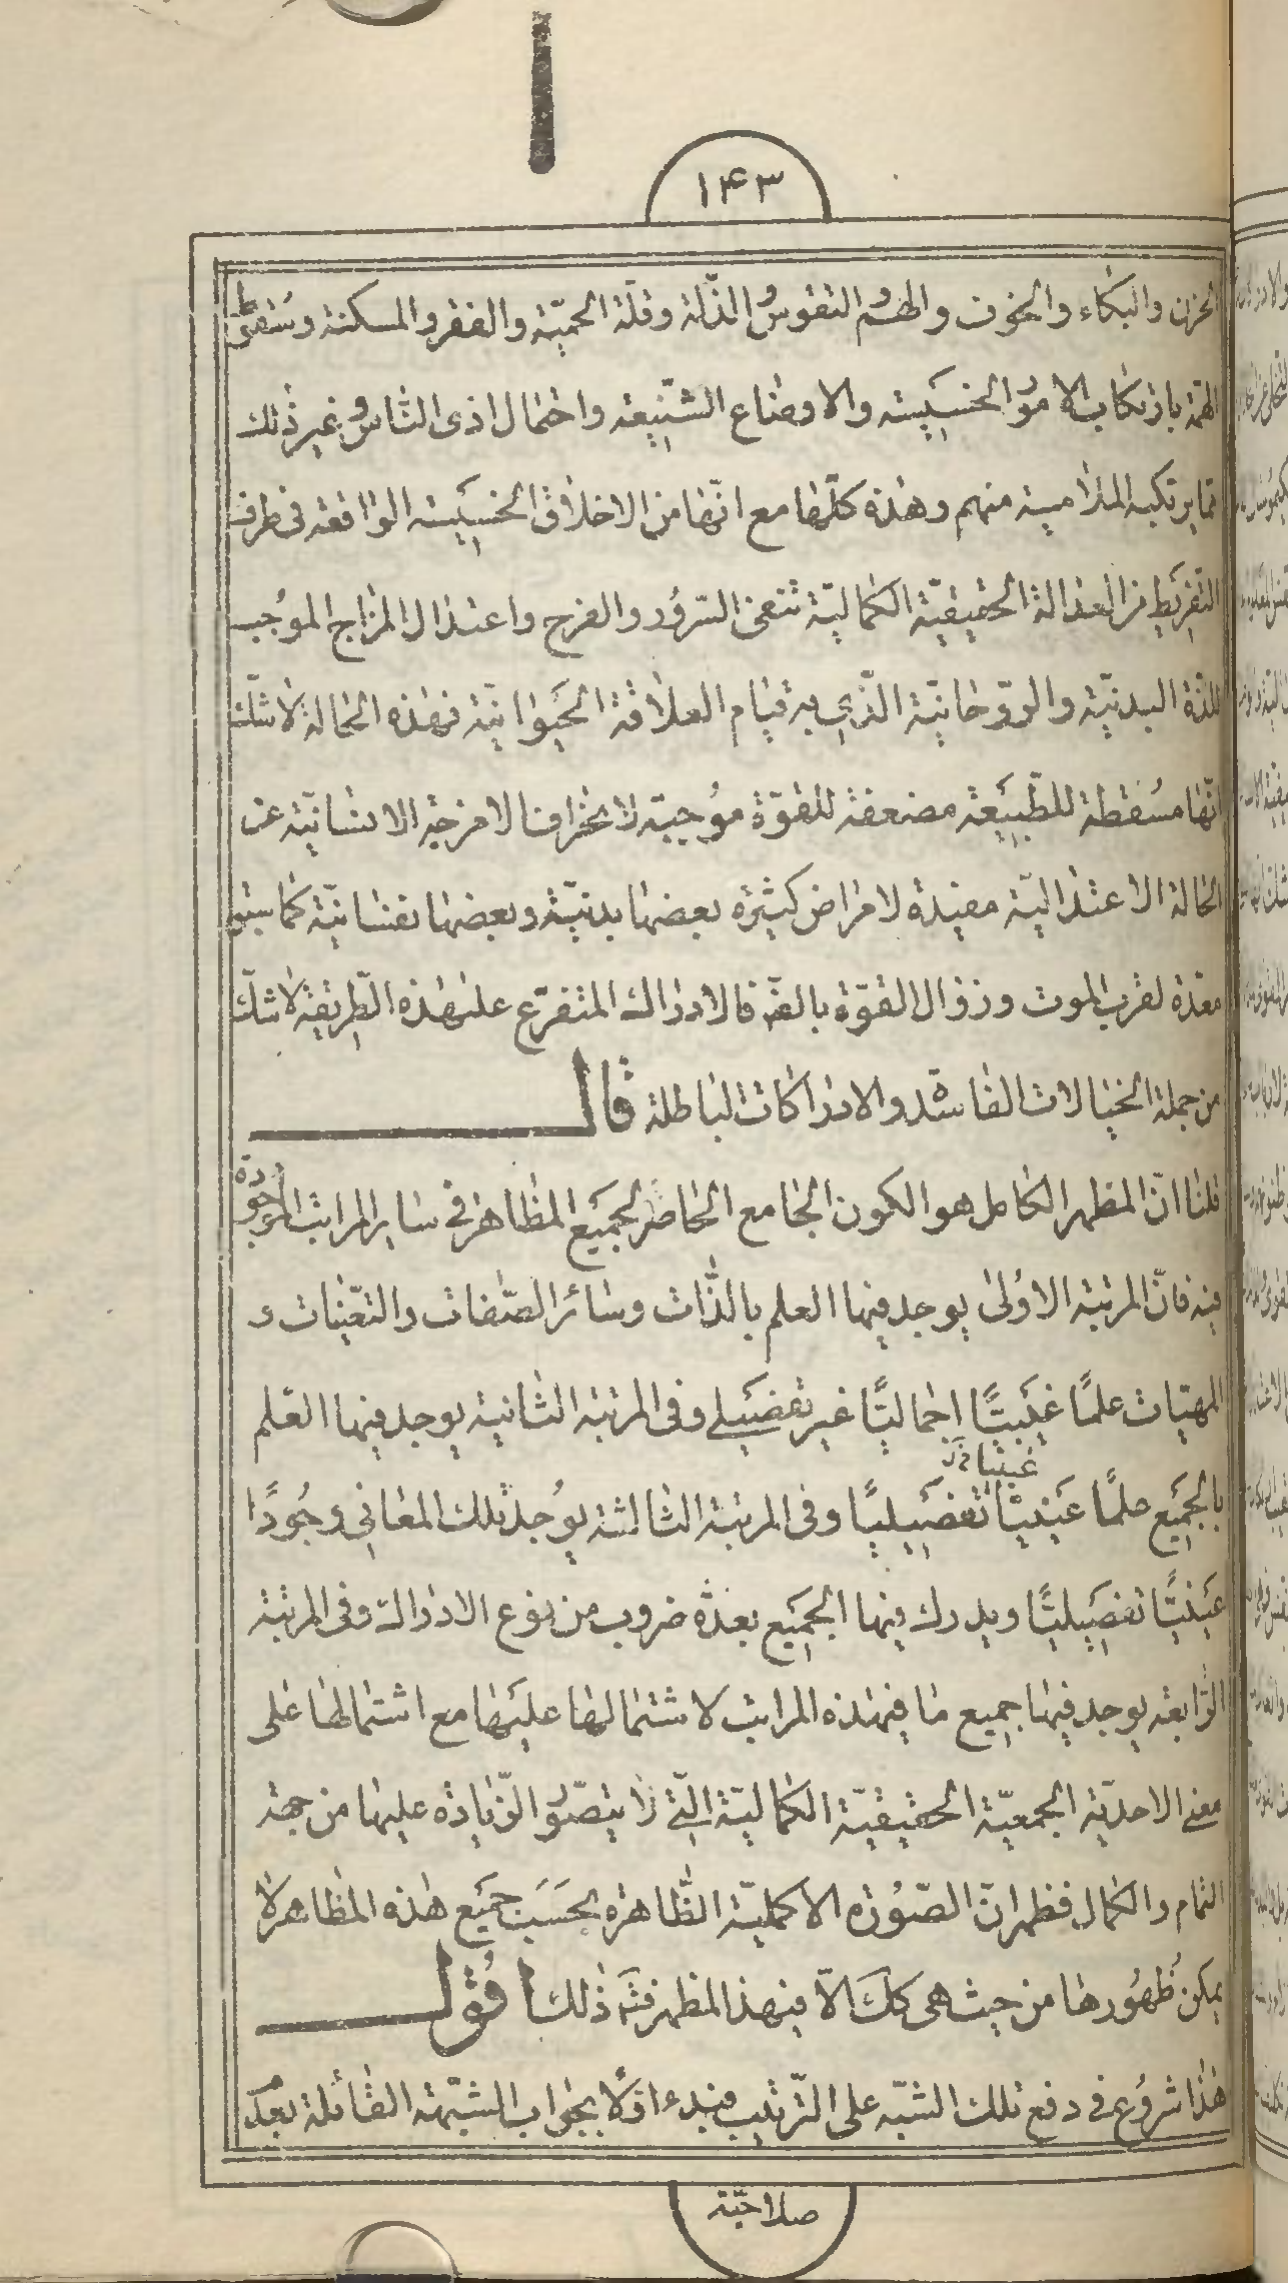 ١۴٣
الحزن والبكاء والخوف والهم النفوس والذّلة وقلّة الحميّة والفقر والمسكنة وسقط
الهمة بارتكاب الامور الخسيسة والاوضاع الشنيعة واحتمال اذى الناس وغير ذلك
مما يرتكبه الملامية منهم وهذه كلّها مع انّها من الاخلاق الخسيسة الواقعة فى طرف
التفريط من العدالة الحقيقيّة الكماليّة تنفى السّرور والفرح واعتدال المزاج الموجب
للذة البدنيّة والروّحانيّة الّذي به قيام العلاقة الحيوانيّة فهذه الحالة لا شكّ
انّها مسقطة للطّبيعة مضعفة للقوّة موجبة لانحراف الامزجة الانسانيّة عن
الحالة الاعتداليّة مفيدة لامراض كثيرة بعضها بدنيّة وبعضها نفسانيّة كما سبق
معدّة لقرب الموت وزوال القوّة بالقّة فالادراك المتفرّع على هذه الطّريقة لا شكّ
من جملة الخيالات الفاسدة والادراكات الباطلة قال
قلنا انّ المظهر الكامل هو الكون الجامع الحاصر لجميع المظاهر فى ساير المراتب الموجودة
فيه فانّ المرتبة الاولى يوجد فيها العلم بالذّات وسائر الصّفات والتعيّنات و
المهيّات علمًا غيبيًّا اجماليًّا غير تفصيلے وفى المرتبة الثانية يوجد فيها العلم
غيبيّا خ‌ل
بالجميع علمًا عينيّا تفصيليًا وفى المرتبة الثالثة يوجد تلك المعانى وجودًا
عينيًّا تفصيليًّا ويدرك فيها الجميع بعدّة ضروب من نوع الادراك وفى المرتبة
الرّابعة يوجد فيها جميع ما فى هذه المراتب لاشتمالها عليها مع اشتمالها على
معنى الاحديّة الجمعيّة الحقيقيّة الكماليّة الّتى لا يتصوّر الزّيادة عليها من جهة
التمام والكمال فظهر انّ الصّورة الاكمليّة الظّاهرة بحسب جميع هذه المظاهر لا
يمكن ظهورها من حيث هى كك الّا فى هذا المظهر فتمّ ذلك اقول
هذا شروع فى دفع تلك الشبّه على التّرتيب فبدء اوّلا بجواب الشبهة القائلة بعدم
صلاحيّة